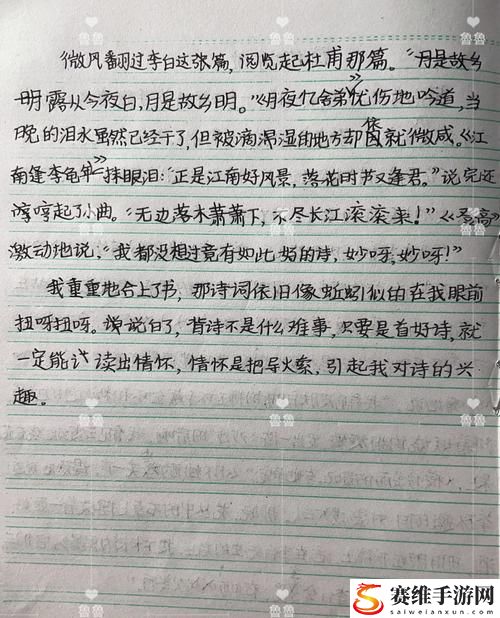 微风翻过李白这张篇，阅览起杜甫那篇。“月是故乡
明露从今夜白，月是故乡明。”《月夜忆舍弟》忧伤地吟道，当
晚的泪水虽然已经干了，但被滴湿的地方却依就微咸。《江
南逢李龟年》一抹眼泪：“正是江南好风景，落花时节又逢君。”说完还
哼哼起了小曲。“无边落木萧萧下，不尽长江滚滚来！”《登高》
激动地说，“我都没想过竟有如此好的诗，妙呀，妙呀！”
我重重地合上了书，那诗词依旧像蚯蚓似的在我眼前
扭呀扭呀。说白了，背诗不是什么难事，只要是首好诗，就
一定能让读出情怀，情怀是把导火索，引起我对诗的兴
趣。
鲁鲁
赛维手游网
saiweianxun.com